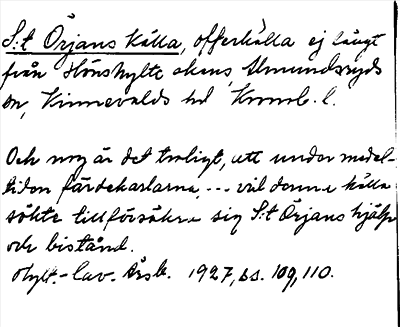 S:t Örjans källa, offerkälla ej långt
från Hönshylte skans, Almundsryds
sn, Kinnevalds hd, Kronob. l.
Och nog är det troligt, att under medel-
tiden färdekarlarna, --- vid denna källa
sökte tillförsäkra sig S:t Örjans hjälp
och bistånd.
Hylt.-Cav. Årsb. 1927, ss. 109, 110.